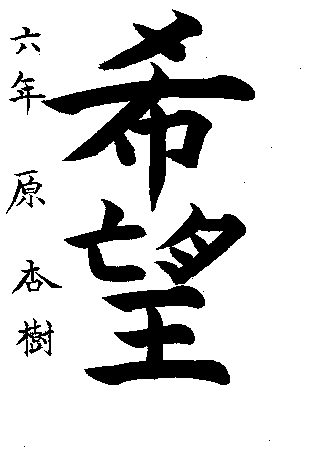 希望
六年 原 杏樹